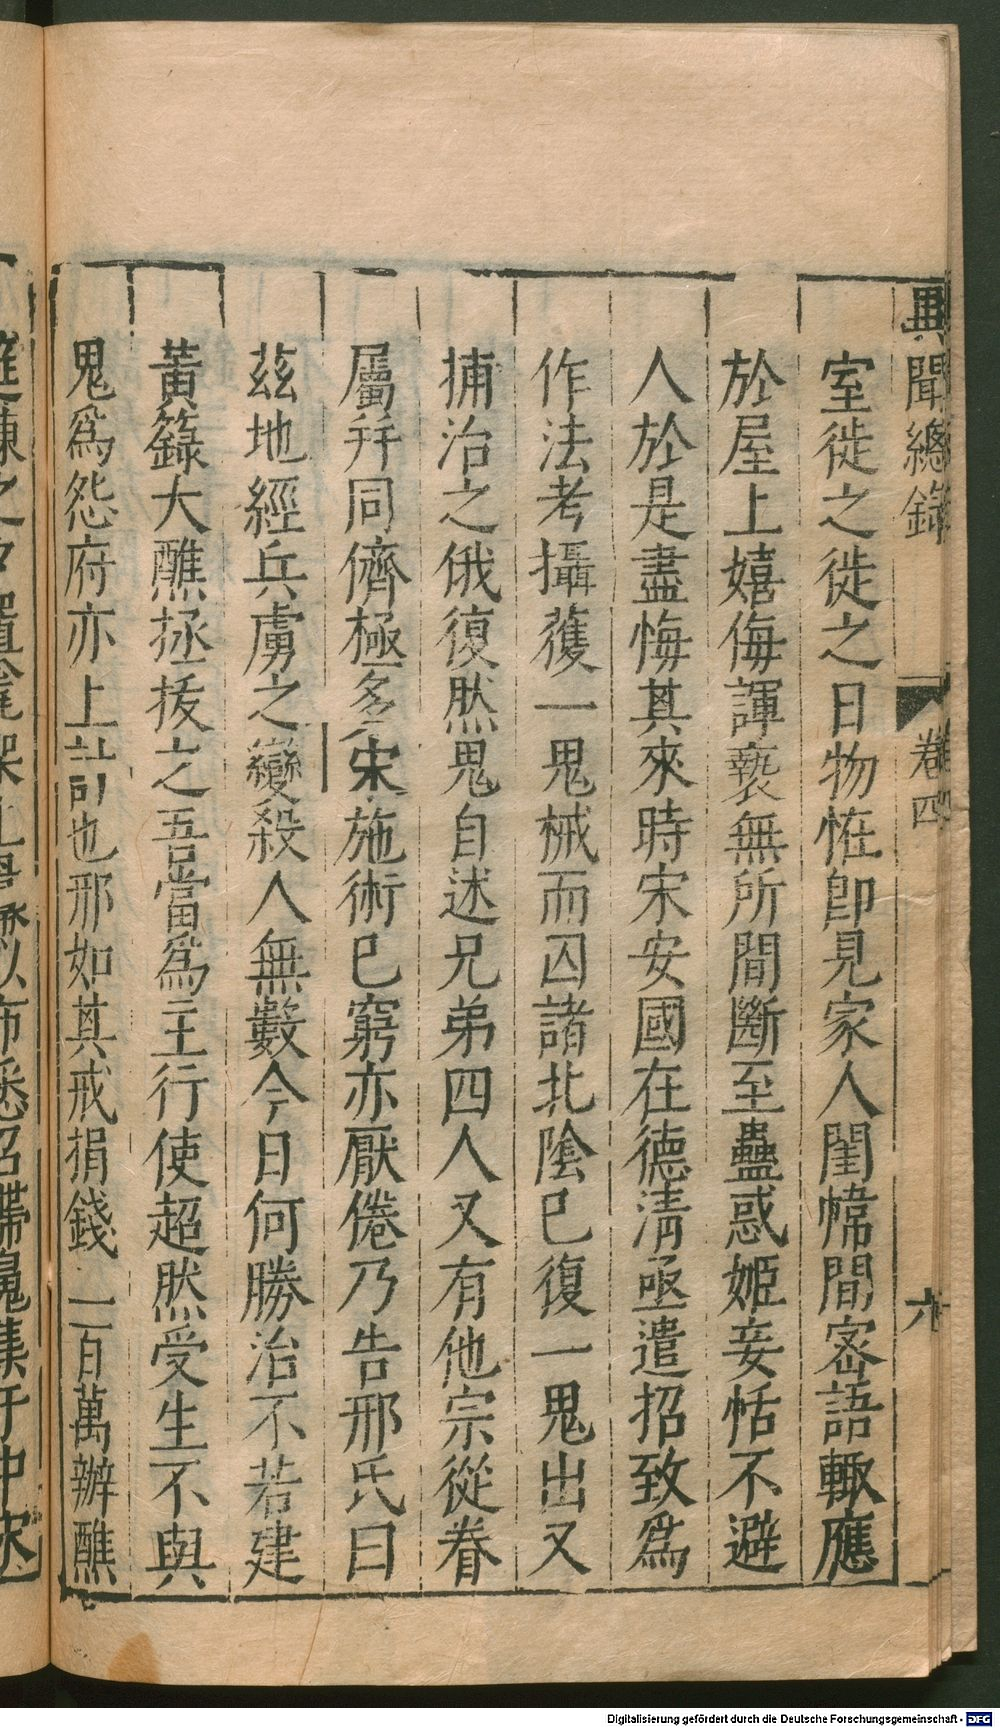 異聞總錄 卷四 六
室徙之徙之日物恠卽見家人閨幃間密語輙應
於屋上嬉侮諢䙝無所間斷至蠱惑姬妾恬不避
人於是盡悔其來時宋安國在德清亟遣招致爲
作法考攝獲一鬼械而囚諸北陰巳復一鬼出又
捕治之俄復然鬼自述兄弟四人又有他宗從眷
屬幷同儕極多宋施術巳窮亦厭倦乃告邢氏曰
茲地經兵虜之變殺人無數今日何勝治不若建
黃籙大醮拯拔之吾當爲主行使超然受生不與
鬼爲怨府亦上計也邢如其戒捐錢二百萬辦醮
Digitalisierung gefördert durch die Deutsche Forschungsgemeinschaft - DFG